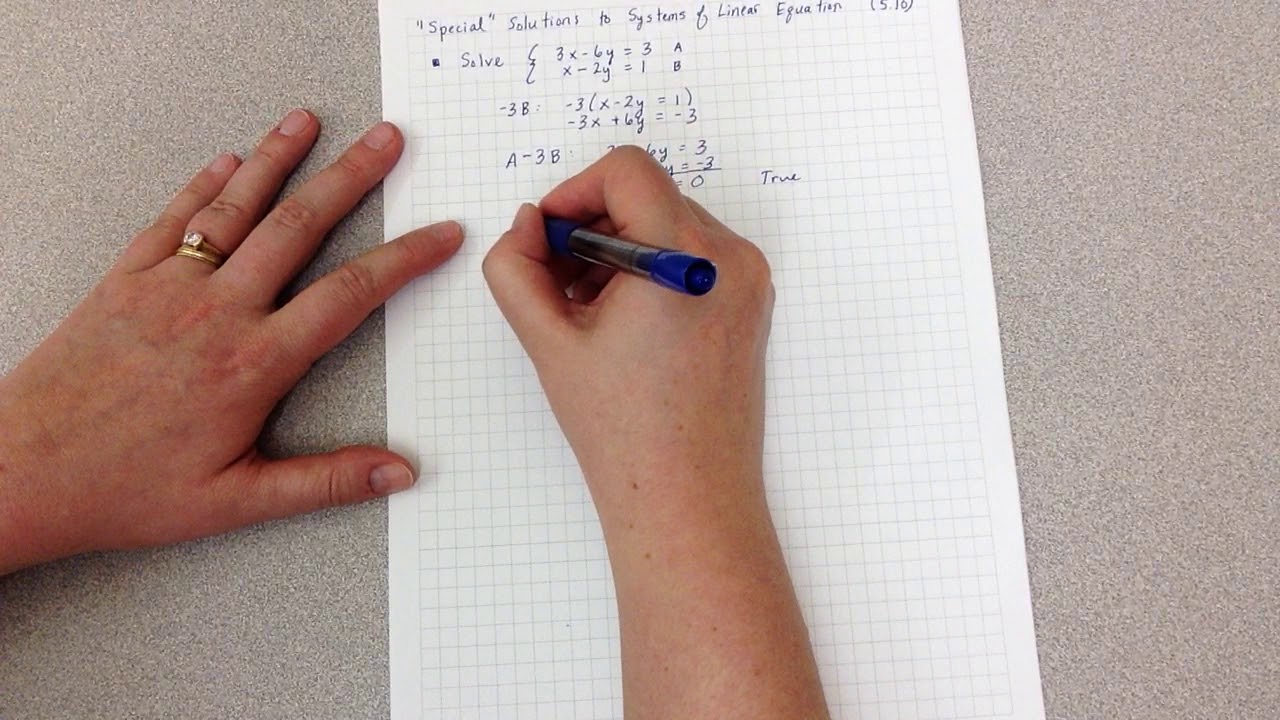 "Special" Solutions to Systems of Linear Equation (5.10)
▪ Solve { 3x - 6y = 3 A
x - 2y = 1 B
-3B: -3(x - 2y = 1)
-3x + 6y = -3
A - 3B: 6y = 3
y = -3
= 0 True